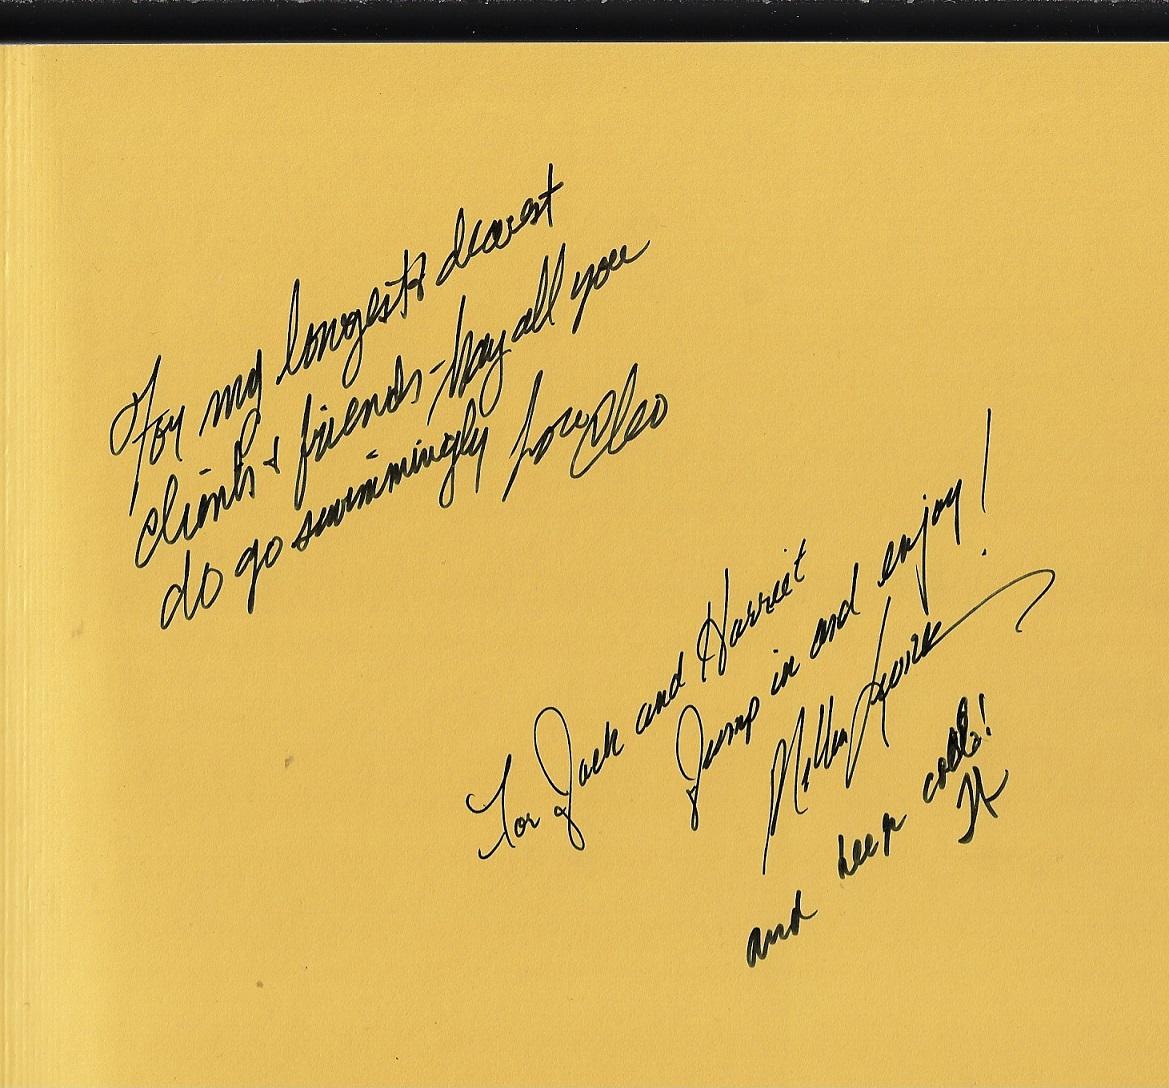 For my longest & dearest
clients & friends - May all you
do go swimmingly Love Cleo
For Jack and Harriet
Jump in and enjoy!
and keep cool!